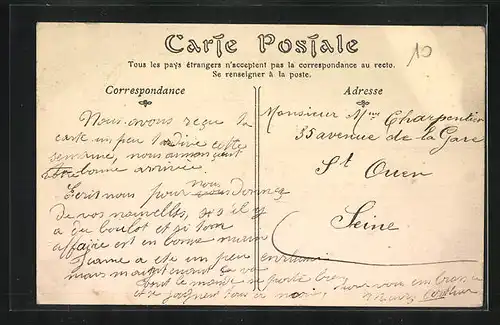 10
Carte Postale
Tous les pays étrangers n'acceptent pas la correspondance au recto.
Se renseigner à la poste.
Correspondance
Adresse
Nous avons reçu ta
carte un peu tardive cette
semaine, nous
bonne arrivée.
Ecris nous pour nous donner
de vos nouvelles, s'il y
a du boulot et si ton
affaire est en bonne main
Jeanne a été un peu enrhumé
mais maintenant ça va
tout le monde se porte bien
vous embrasse
Monsieur Mme Charpentier
35 avenue de la Gare
St Ouen
Seine